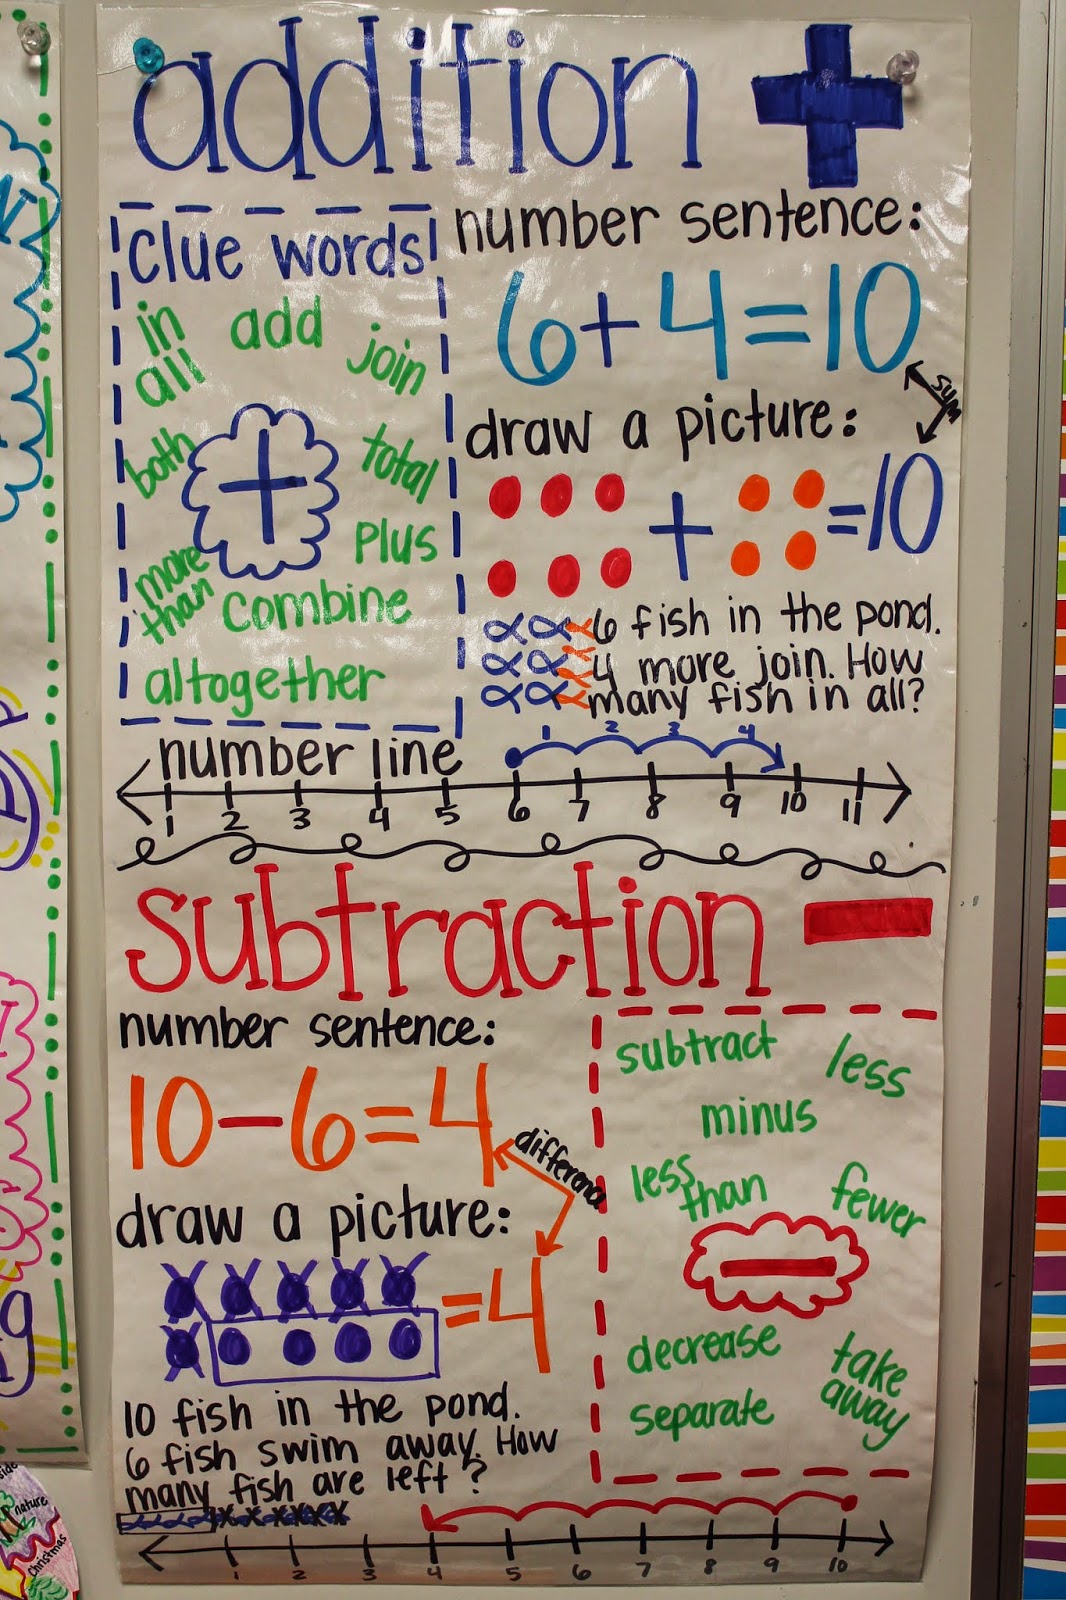 addition +
clue words
in all
add
join
both
+
total
plus
more than
combine
altogether
number sentence:
6 + 4 = 10
sum
draw a picture:
+ = 10
6 fish in the pond.
4 more join. How
many fish in all?
number line
1 2 3 4
1 2 3 4 5 6 7 8 9 10 11
subtraction −
number sentence:
10 − 6 = 4
difference
draw a picture:
= 4
10 fish in the pond.
6 fish swim away. How
many fish are left?
subtract
less
minus
less than
fewer
−
decrease
take away
separate
1 2 3 4 5 6 7 8 9 10
nature
Christmas